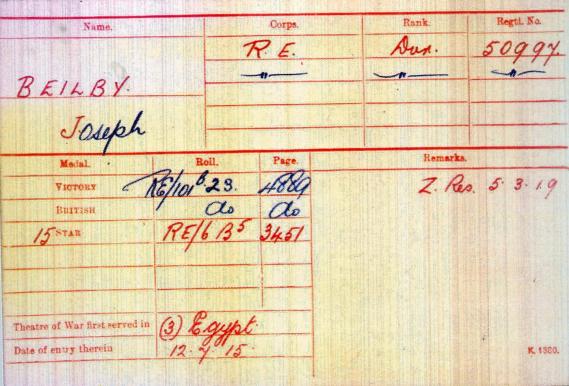 Name. Corps. Rank. Regtl. No.
R. E. Dvr. 50997
BEILBY.
Joseph
Medal. Roll. Page. Remarks.
VICTORY RE/101 B 23. 4889 Z. Res. 5.3.19
BRITISH do do
15 STAR RE/6 B5 3451
Theatre of War first served in (3) Egypt.
Date of entry therein 12.7.15.
K. 1380.